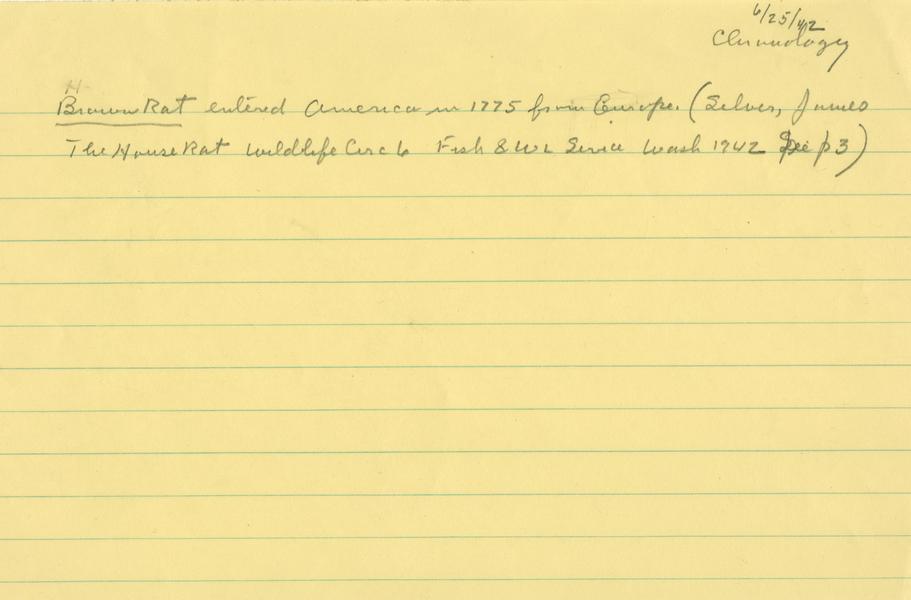 6/25/42
Chronology
H
Brown Rat entered America in 1775 from Europe. (Silver, James
The House Rat Wildlife Circ 6 Fish & WL Service Wash 1942 p 3)